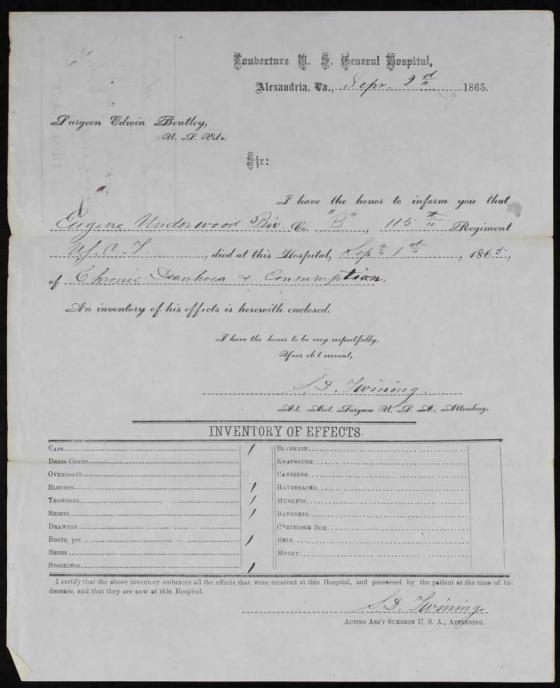 Louverture U. S. General Hospital,
Alexandria, Va., Sepr. 2d 1865.
Surgeon Edwin Bentley,
U. S. Vols.
Sir:
I have the honor to inform you that
Eugene Underwood Priv Co. "B", 115th Regiment
U.S.C.T, died at this Hospital, Sept. 1st, 1865,
of Chronic Diarrhoea & Consumption.
An inventory of his effects is herewith enclosed.
I have the honor to be very respectfully,
Your ob't servant,
S. D. Twining.
Act. Asst. Surgeon U. S. A., Attending.
INVENTORY OF EFFECTS.
CAPS 1 BLANKETS
DRESS COATS KNAPSACKS
OVERCOATS CANTEENS
BLOUSES 1 HAVERSACKS
TROWSERS 1 MUSKETS
SHIRTS 1 BAYONETS
DRAWERS CARTRIDGE BOX
BOOTS, prs 1 BELT
SHOES MONEY
STOCKINGS 1
I certify that the above inventory embraces all the effects that were received at this Hospital, and possessed by the patient at the time of his
decease, and that they are now at this Hospital.
S. D. Twining.
ACTING ASS'T SURGEON U. S. A., ATTENDING.